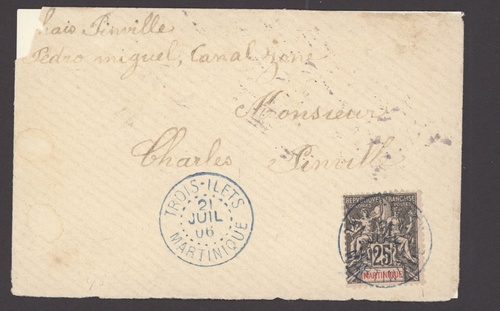 Pinville
Pedro miguel, Canal Zone
Monsieur
Charles Pinvill
TROIS-ILETS
21
JUIL
06
MARTINIQUE
REPUBLIQUE FRANCAISE
25
MARTINIQUE